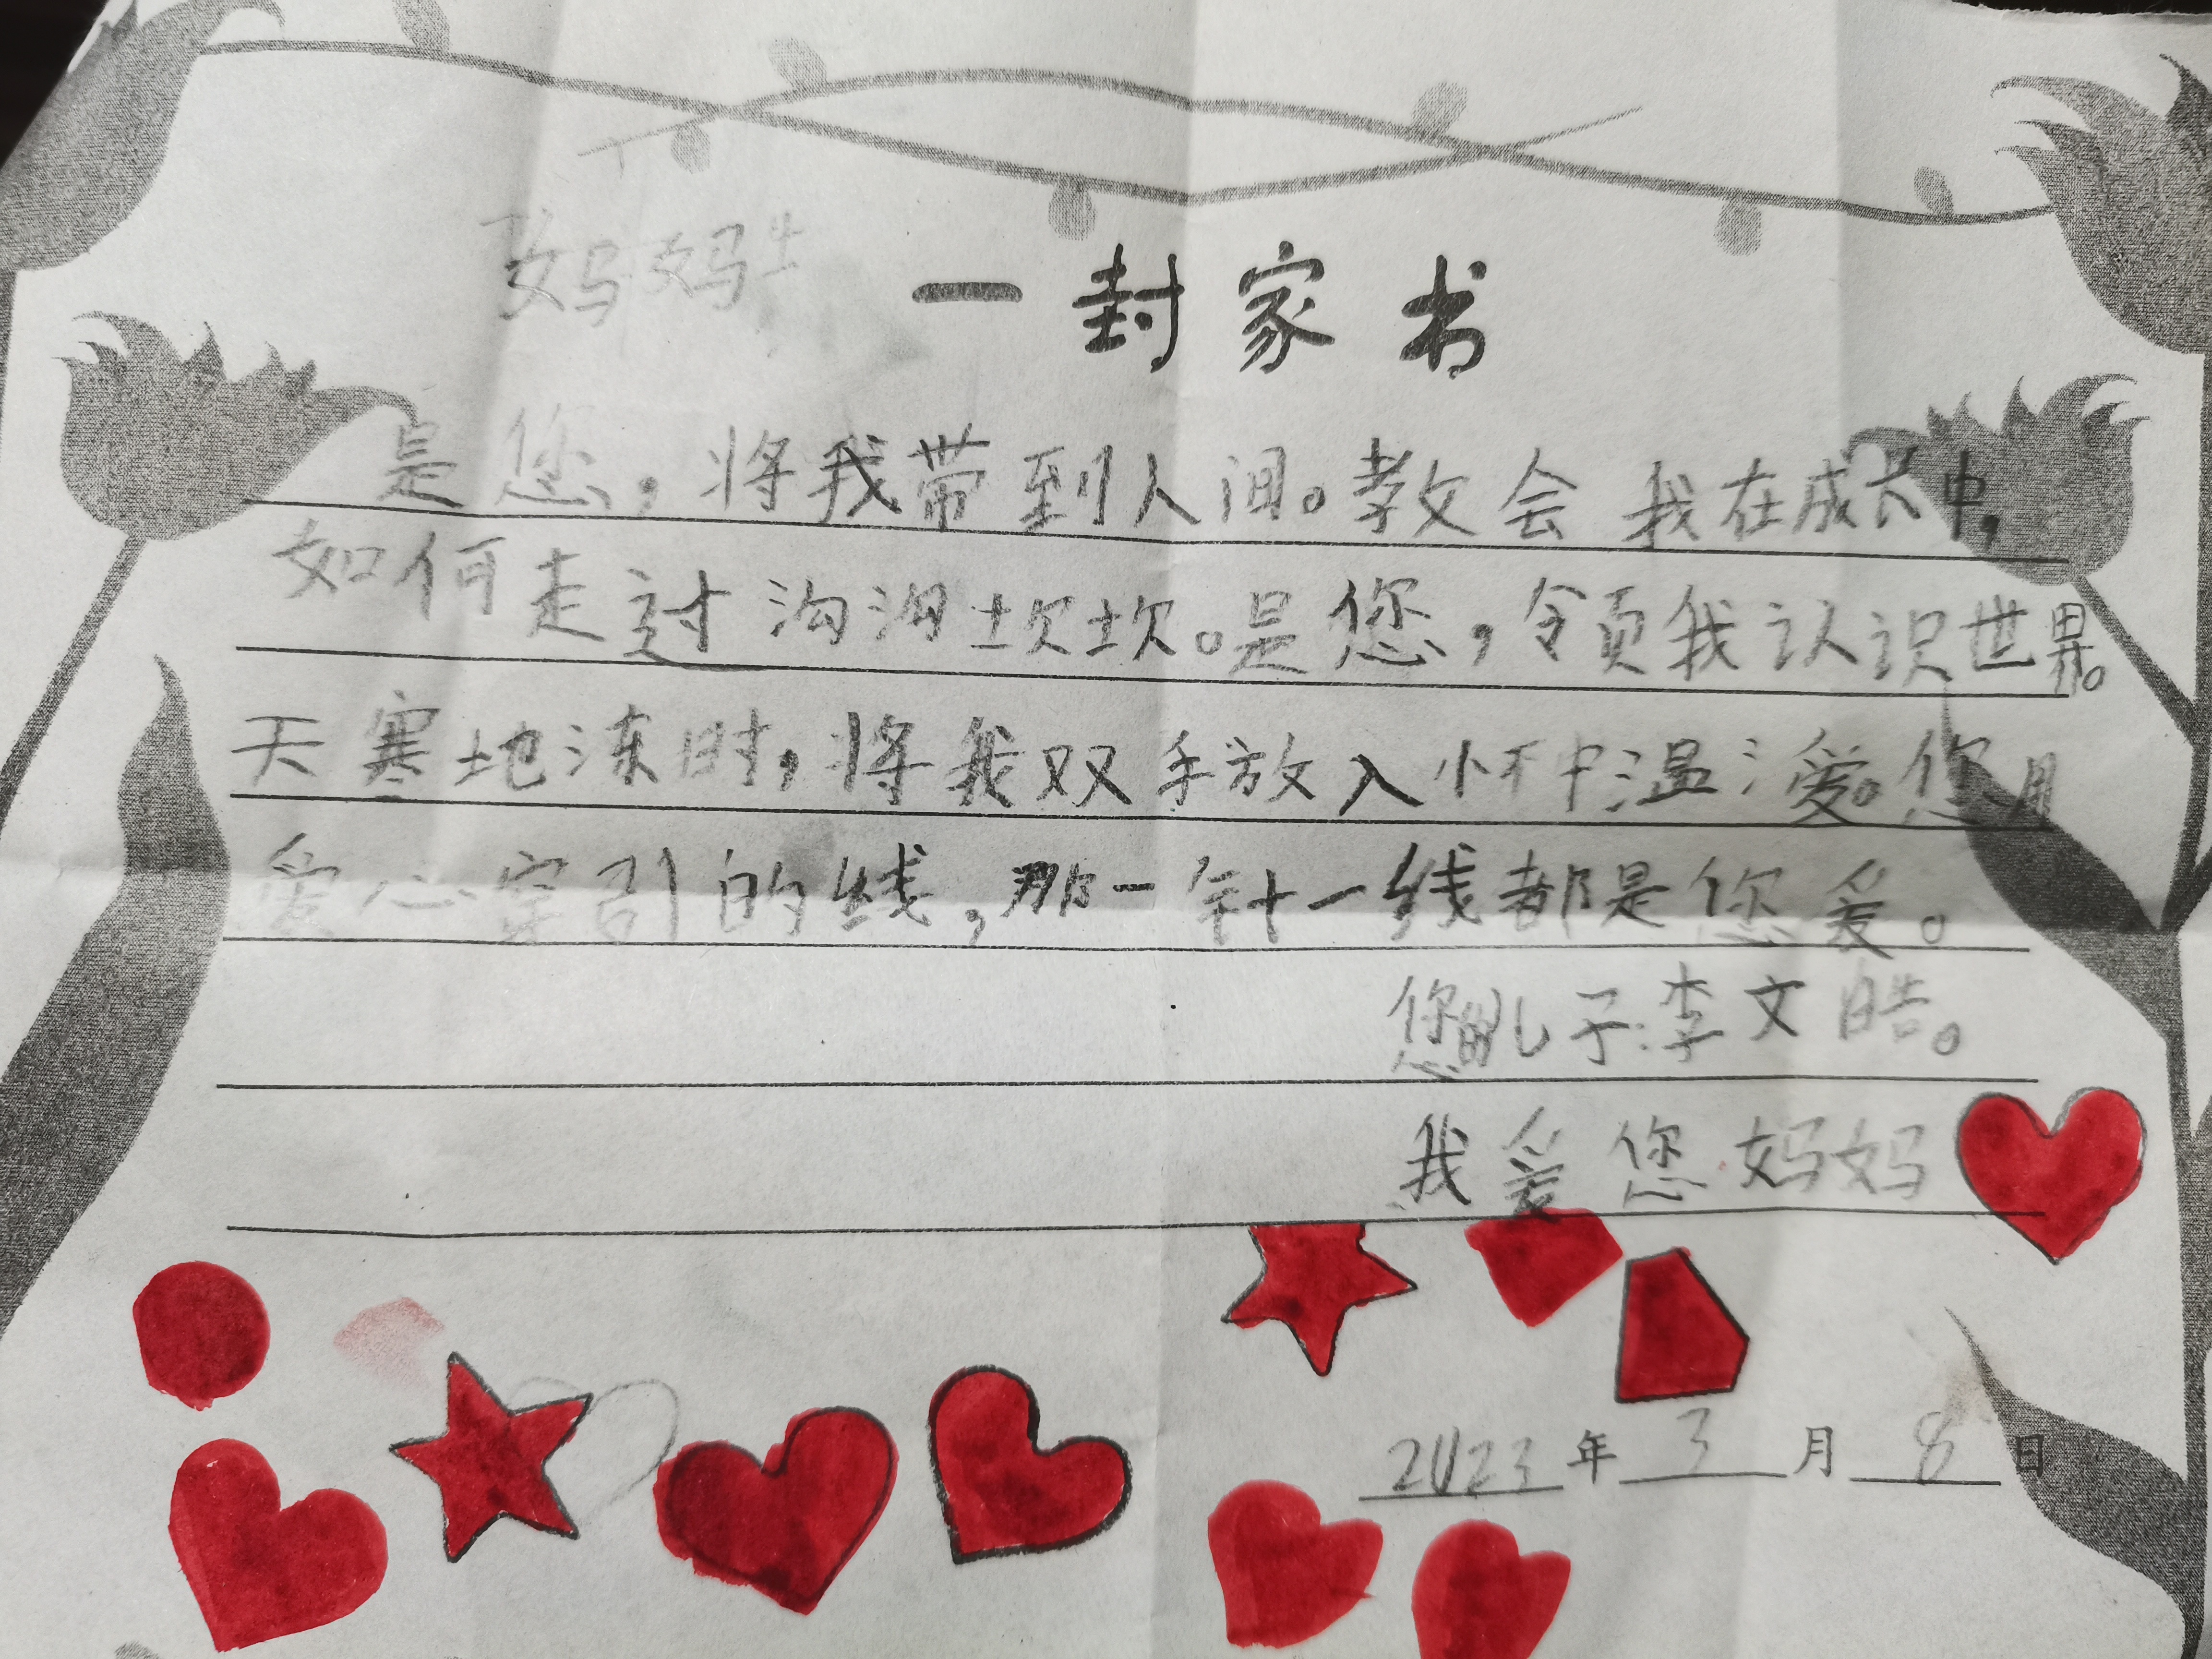 妈妈
一封家书
是您，将我带到人间。教会我在成长中，
如何走过沟沟坎坎。是您，领我认识世界。
天寒地冻时，将我双手放入怀中温爱。您用
爱心穿引的线，那一针一线都是您爱。
您的儿子：李文皓。
我爱您妈妈
2023年3月8日